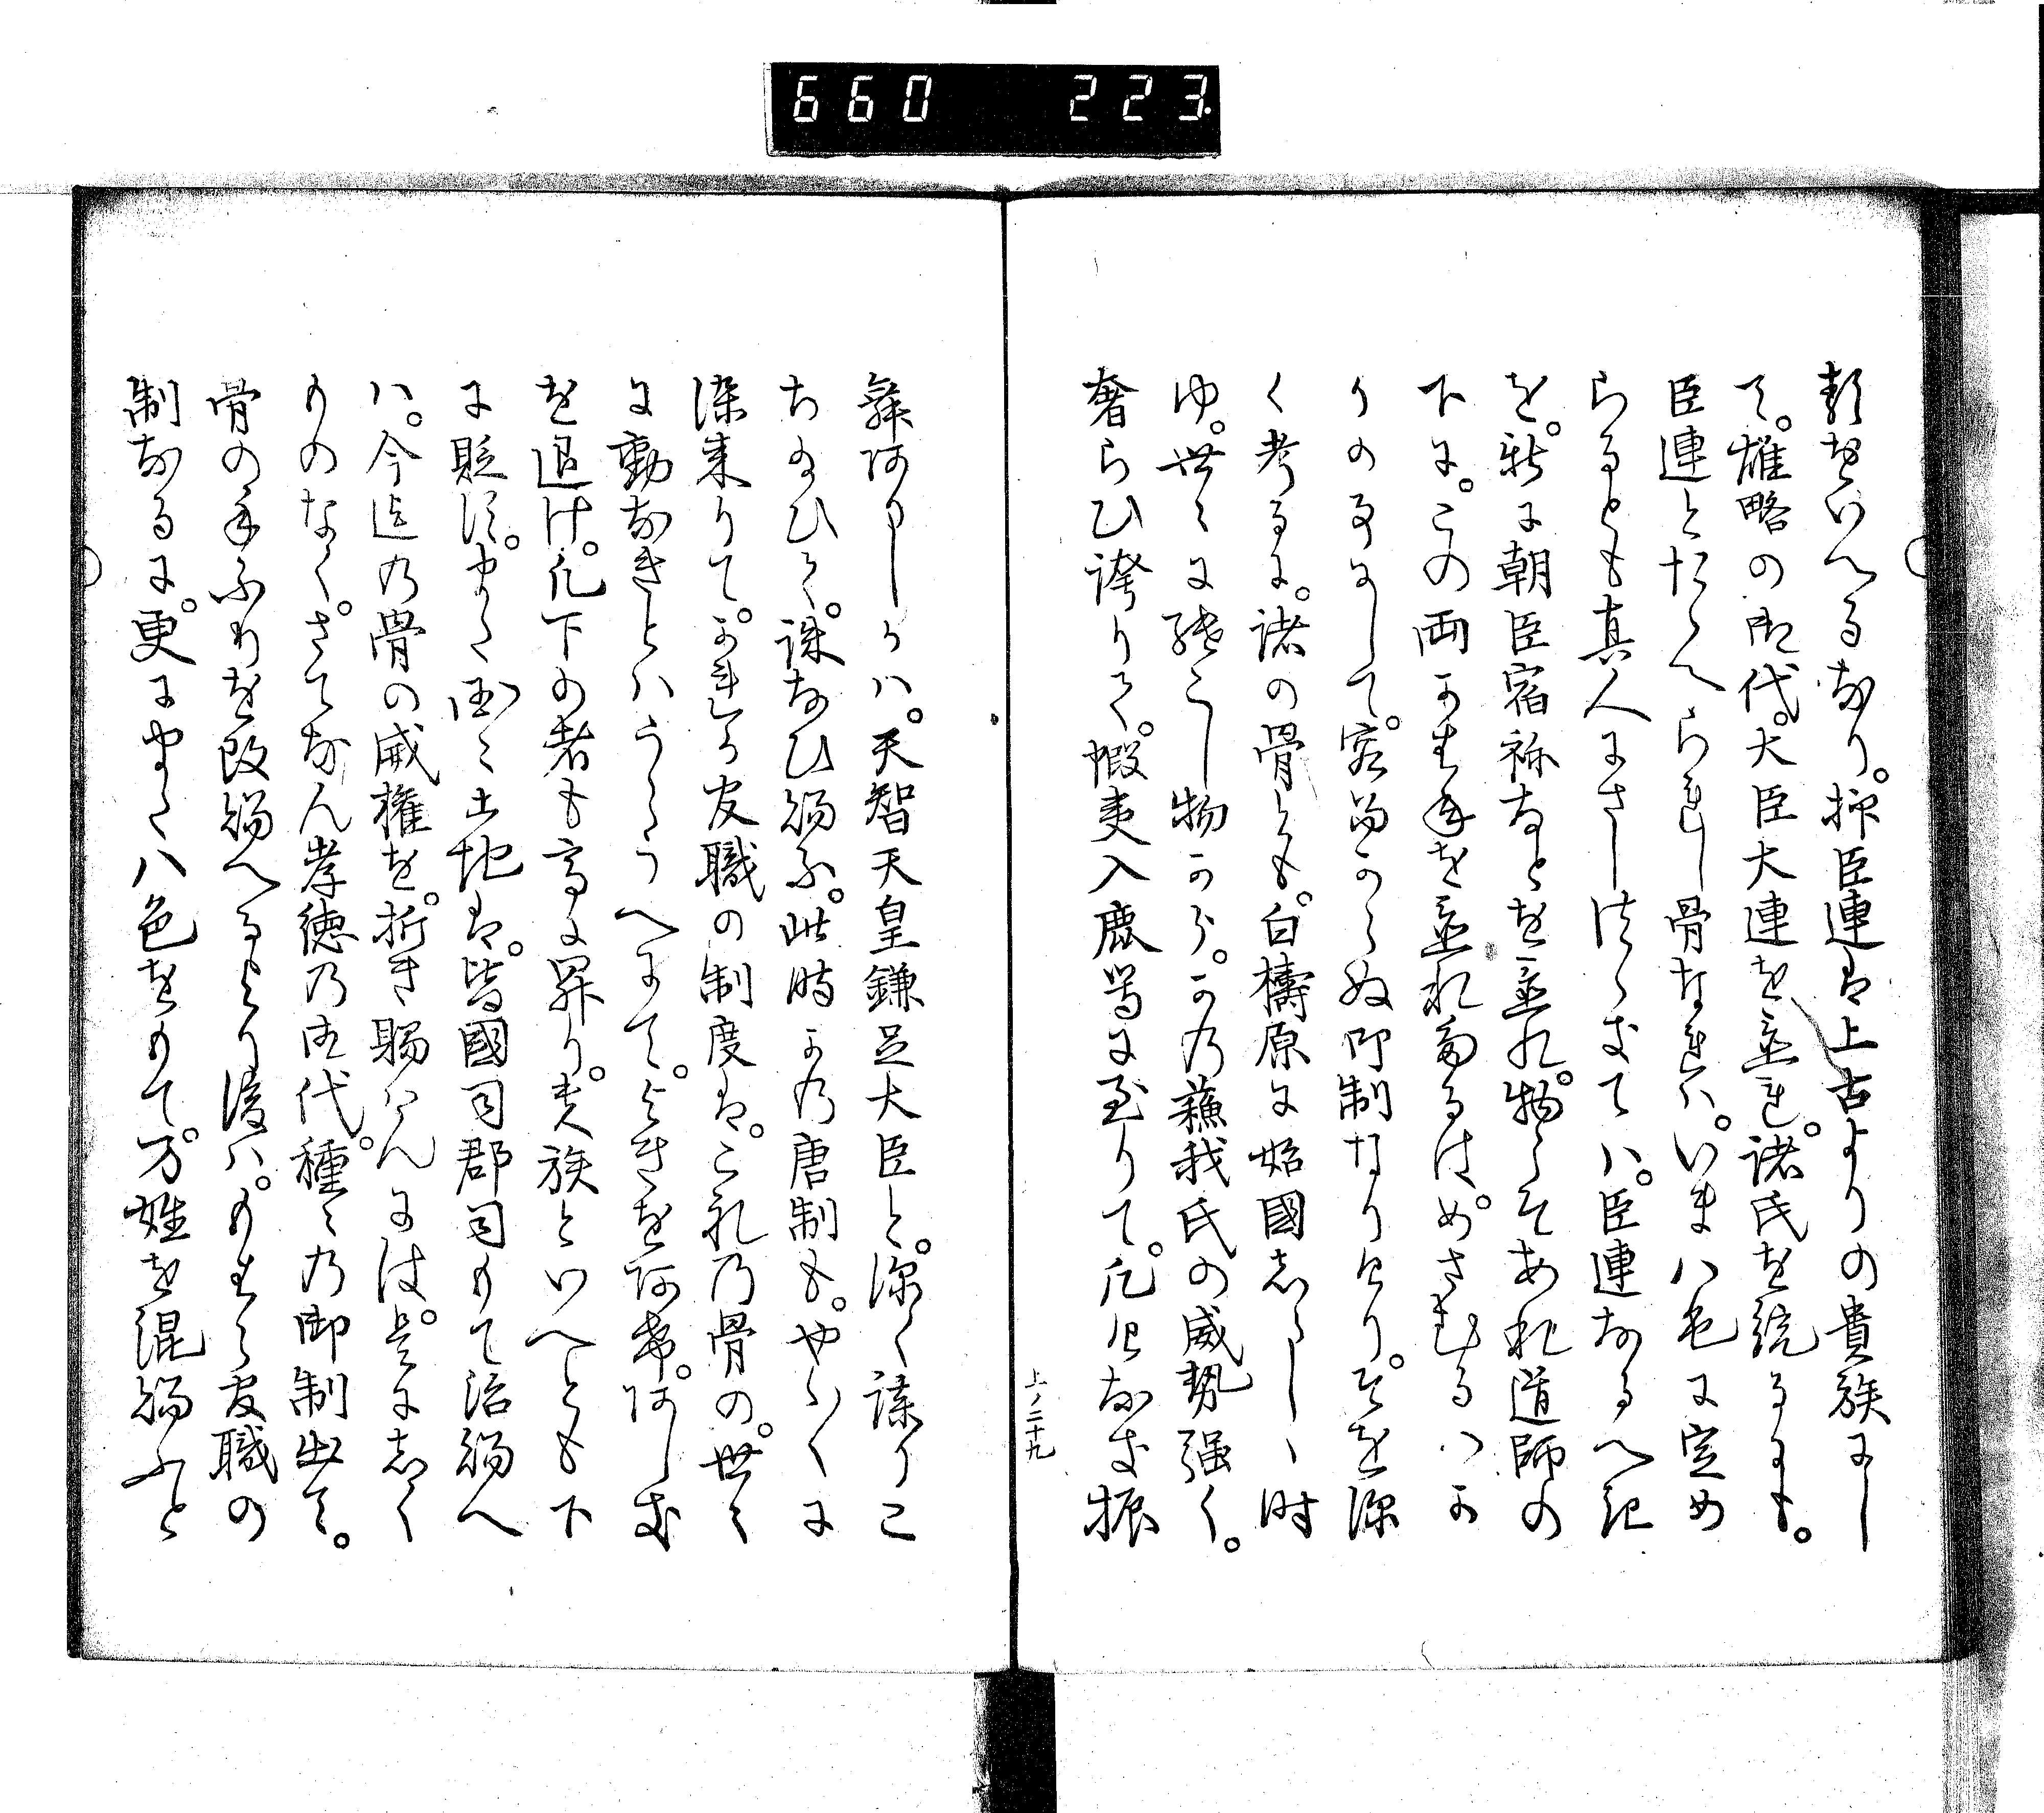 660 223
類をいへるなり。抑臣連は上古よりの貴族にし
て。雄略の御代。大臣大連を立れ。諸氏を統るにも。
臣連とたゝへられし骨なれは。いま八色に定め
らるとも真人にさしつゝきては。臣連なるへき
を。新に朝臣宿祢なとを立れ。物こそあれ道師の
下に。この両かはねを立れたるは。めさむるはか
りの事にして。容易からぬ御制なりけり。そを深
く考るに。諸の骨とも。白檮原に始國しらしゝ時
ゆ。世々に残こし物から。かの蘇我氏の威勢強く。
奢らひ誇りて。蝦夷入鹿等に至りて。凡けなき振
上ノ二十九
舞ありしかハ。天智天皇鎌足大臣と。深く謀りこ
ちたひて。誅なひ給ふ。此時かの唐制も。やうやくに
深来りて。かれか官職の制度は。これの骨の。世々
に動なきとハうらうへにて。よきをあけ。あしき
を退け。凡下の者も高に昇り。貴族といへとも下
に貶す。また國々土地は。皆國司郡司もて治給へ
ハ。今迄の骨の威権を。折き賜はんには。是にしく
ものなく。さてなん孝徳の御代。種々の御制出て。
骨の手ふりを改給へるより後ハ。もはら官職の
制なるに。更にまた八色をもて。万姓を混給ふと